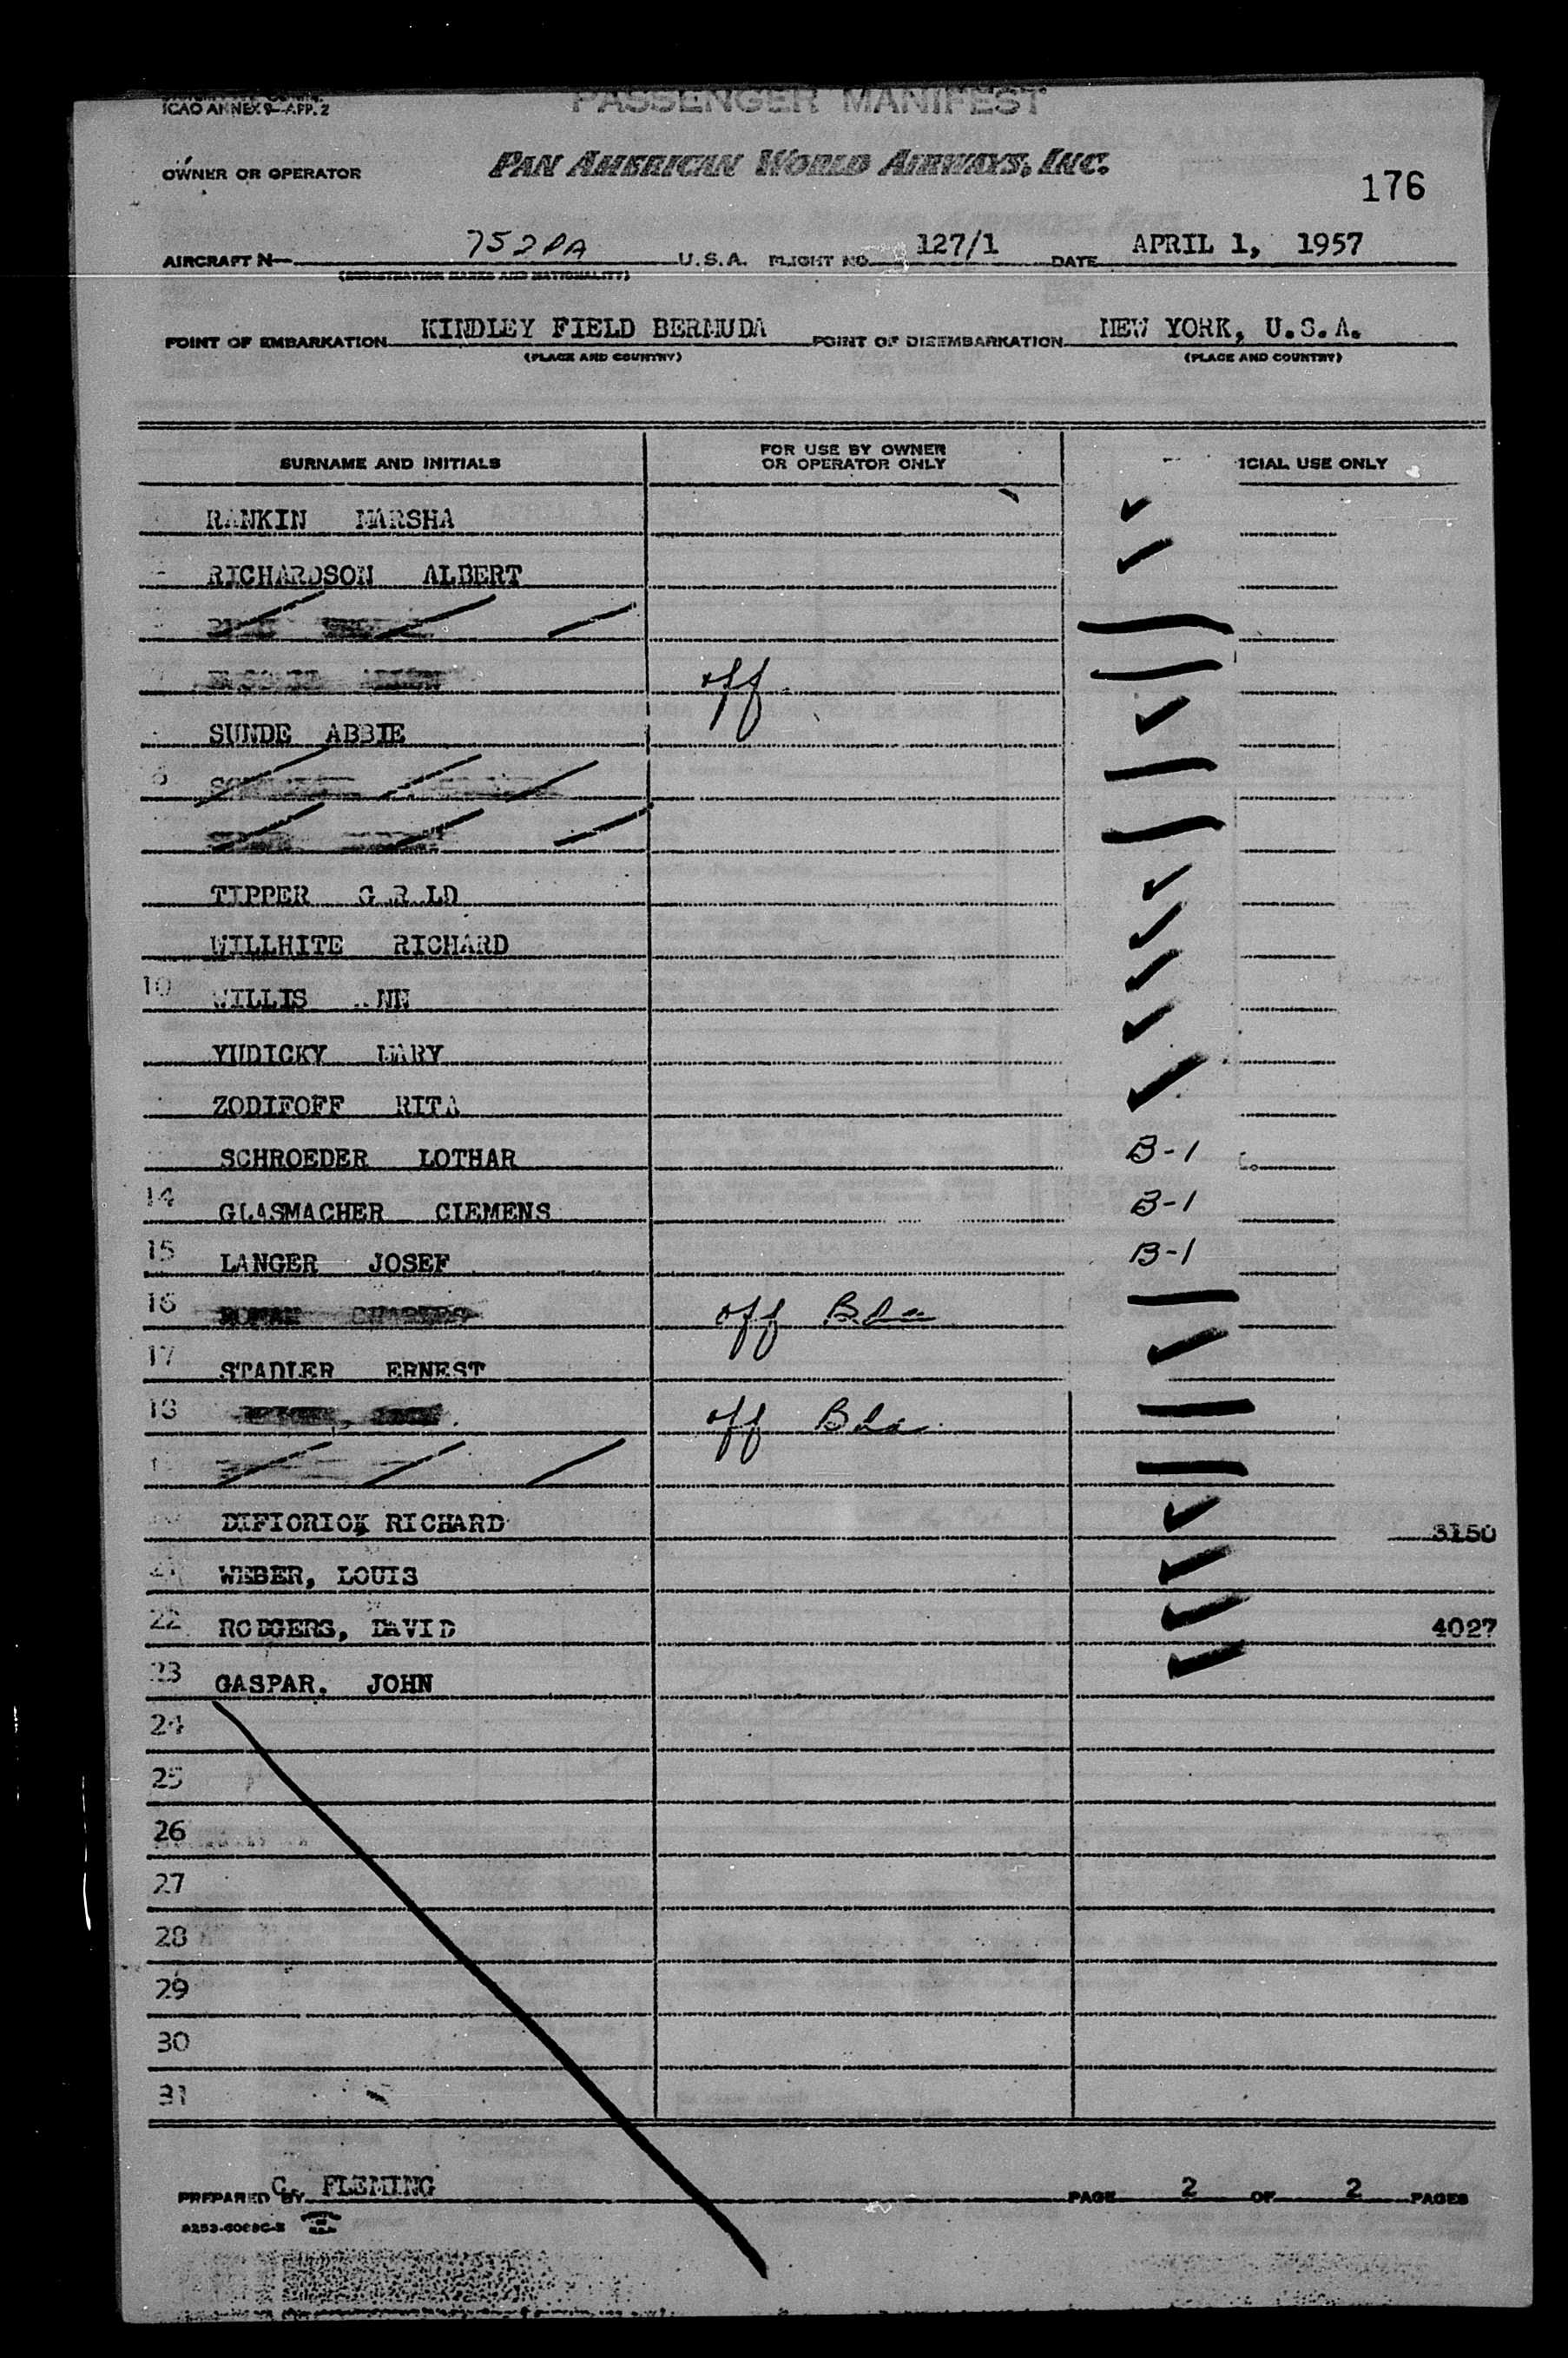 ICAO ANNEX 9—APP. 2
PASSENGER MANIFEST
OWNER OR OPERATOR PAN AMERICAN WORLD AIRWAYS, INC.
176
AIRCRAFT N— 752PA U.S.A. FLIGHT NO. 127/1 DATE APRIL 1, 1957
(REGISTRATION MARKS AND NATIONALITY)
POINT OF EMBARKATION KINDLEY FIELD BERMUDA POINT OF DISEMBARKATION NEW YORK, U.S.A.
(PLACE AND COUNTRY) (PLACE AND COUNTRY)
SURNAME AND INITIALS FOR USE BY OWNER OR OPERATOR ONLY ICIAL USE ONLY
RANKIN MARSHA ✓
RICHARDSON ALBERT ✓
off
SUNDE ABBIE ✓
6
TIPPER G R LD ✓
WILLHITE RICHARD ✓
10 WILLIS NN ✓
YUDICKY MARY ✓
ZODIFOFF RITA ✓
SCHROEDER LOTHAR B-1
14 GLASMACHER CLEMENS B-1
15 LANGER JOSEF B-1
16 off Bda
17 STADLER ERNEST ✓
18 off Bda
DIFIORIOK RICHARD ✓ 3150
21 WEBER, LOUIS ✓
22 RODGERS, DAVID ✓ 4027
23 GASPAR. JOHN ✓
24
25
26
27
28
29
30
31
PREPARED BY C. FLEMING PAGE 2 OF 2 PAGES